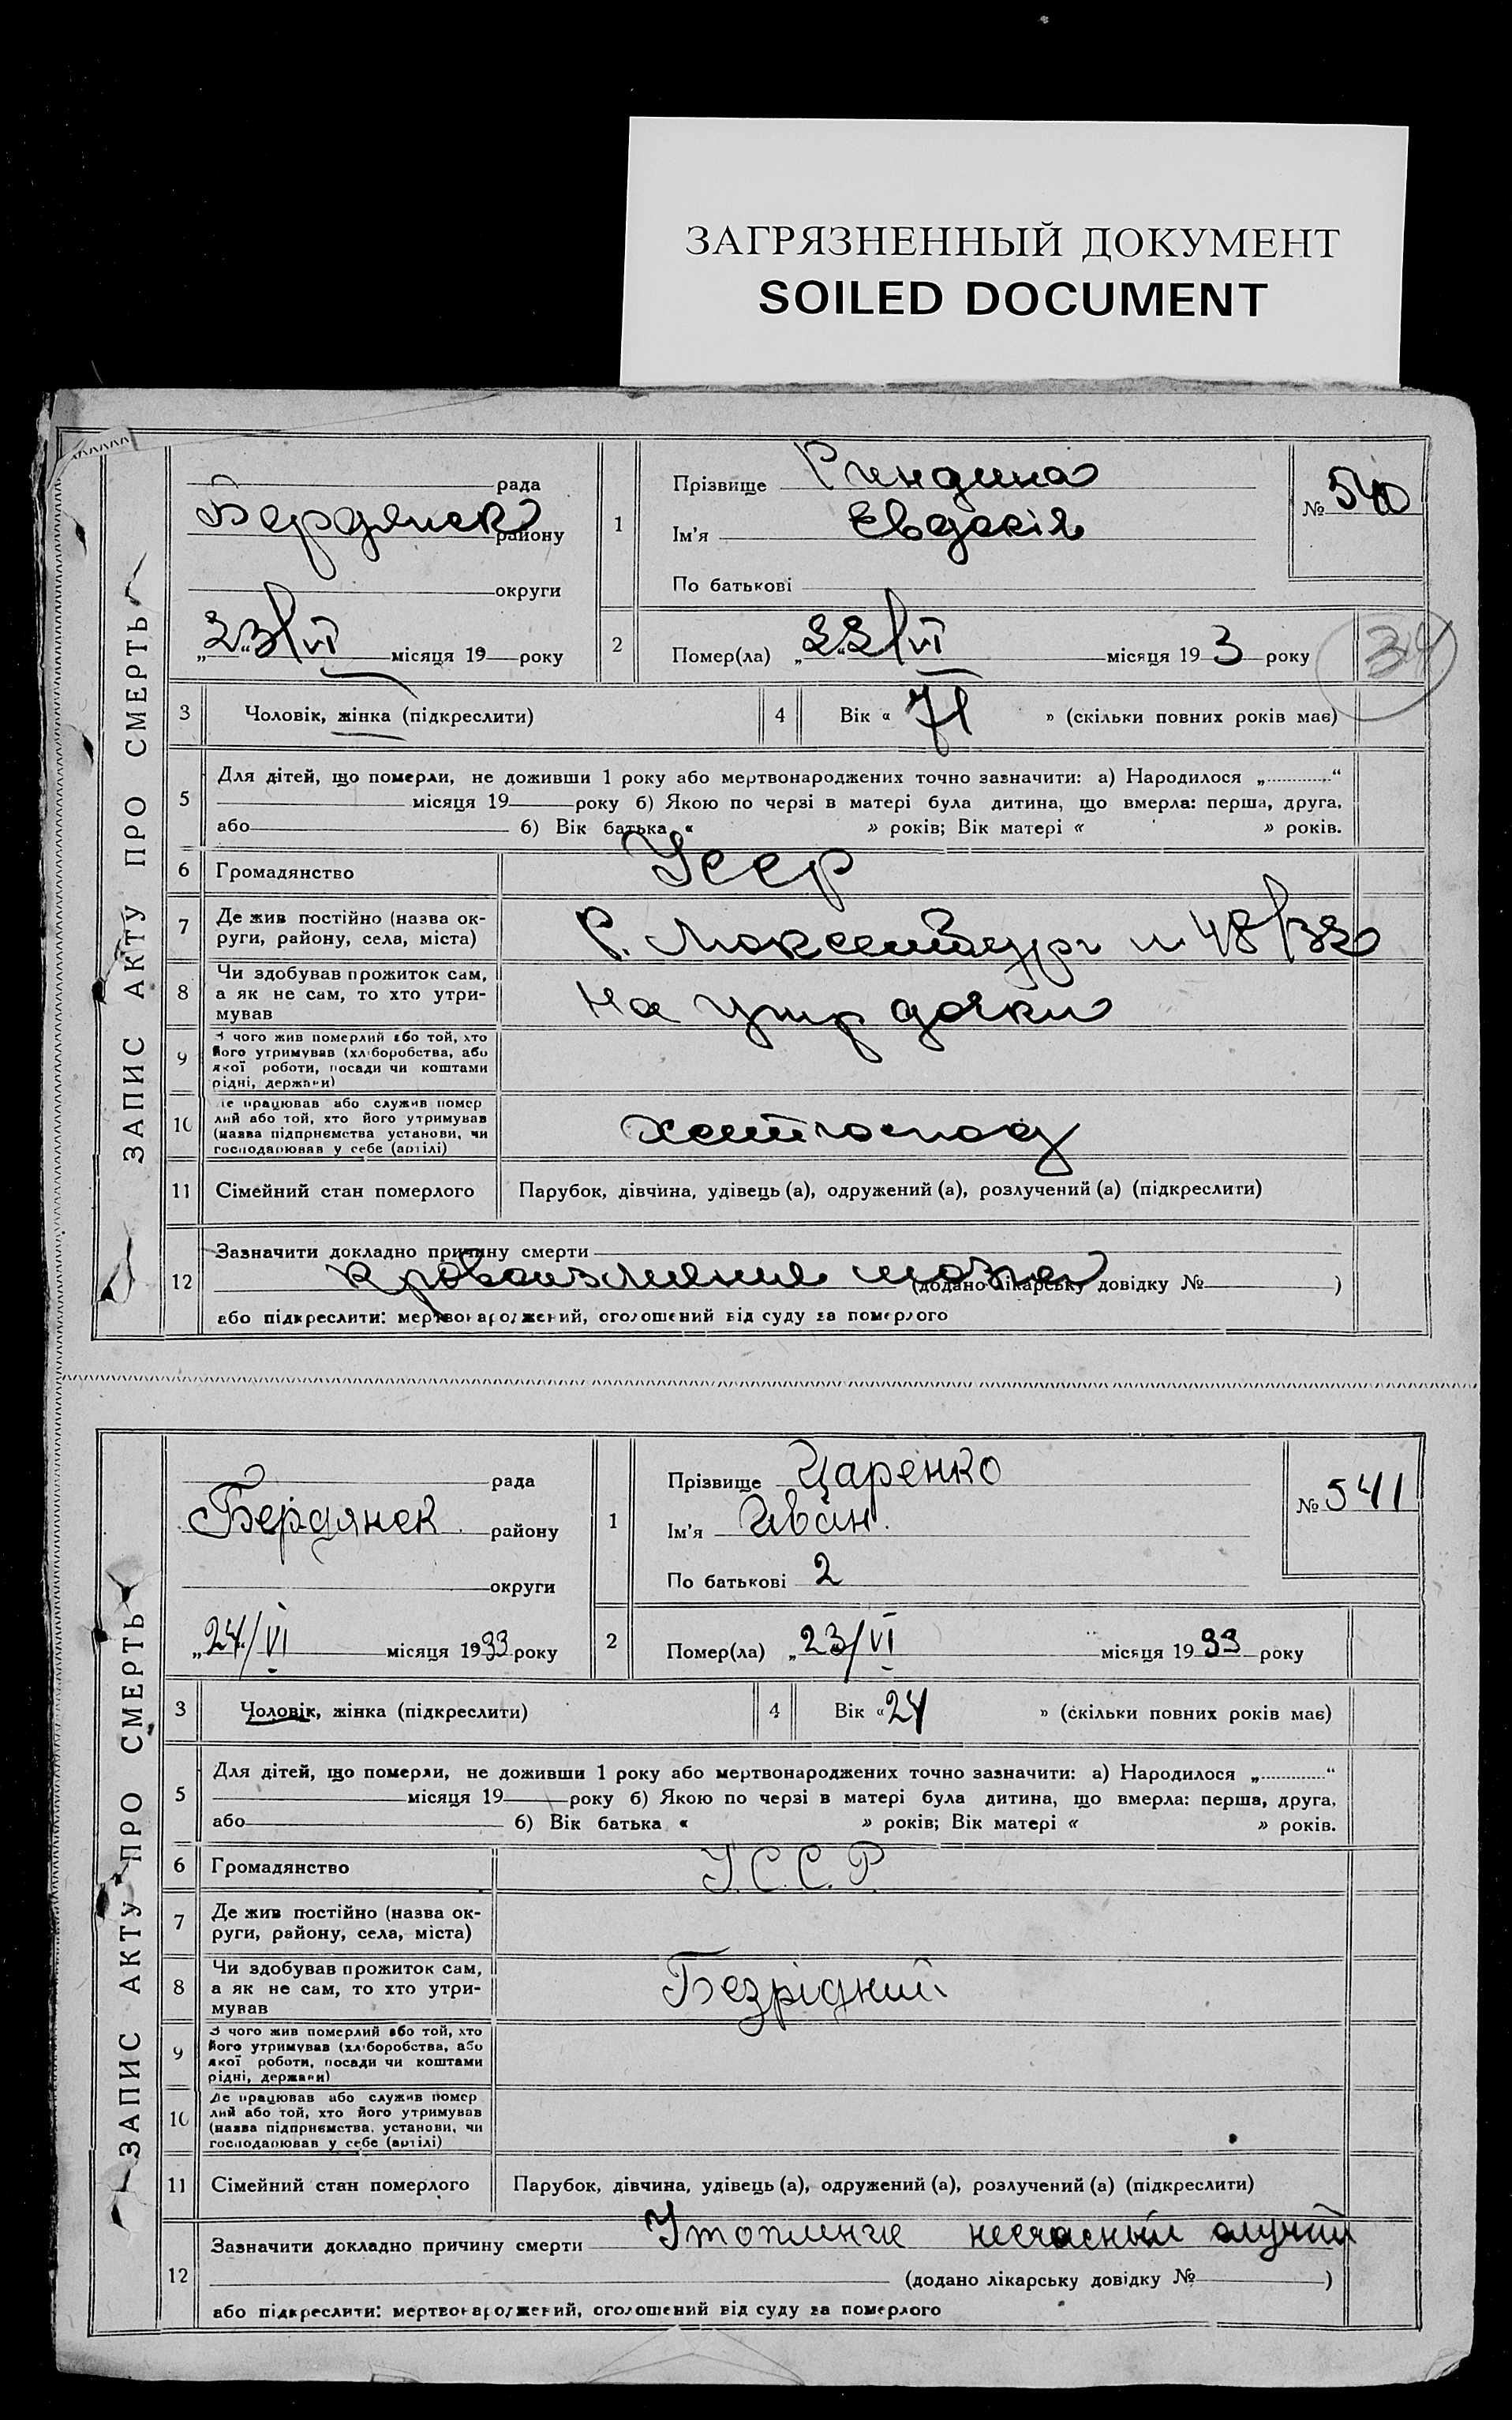 ЗАГРЯЗНЕННЫЙ ДОКУМЕНТ
SOILED DOCUMENT
ЗАПИС АКТУ ПРО СМЕРТЬ
рада
Бердянск району
округи
„23/VI місяця 19 року
1
Прізвище Риндина
Ім'я Евдокія
По батькові
№ 540
2
Помер(ла) „22/VI місяця 193 року
34
3 Чоловік, жінка (підкреслити)
4 Вік « 71 » (скільки повних років має)
5
Для дітей, що померли, не доживши 1 року або мертвонароджених точно зазначити: а) Народилося „ “
місяця 19 року б) Якою по черзі в матері була дитина, що вмерла: перша, друга,
або б) Вік батька « » років; Вік матері « » років.
6 Громадянство Усср
7
Де жив постійно (назва ок-
руги, району, села, міста)
Р. Люксембург 48/32
8
Чи здобував прожиток сам,
а як не сам, то хто утри-
мував
На утр дочки
9
З чого жив померлий або той, хто
його утримував (хліборобства, або
якої роботи, посади чи коштами
рідні, держави)
10
Де працював або служив помер
лий або той, хто його утримував
(назва підприємства установи, чи
господарював у себе (артілі)
хатгоспод
11 Сімейний стан померлого Парубок, дівчина, удівець (а), одружений (а), розлучений (а) (підкреслити)
12
Зазначити докладно причину смерти
кровоизлияние мозга (додано лікарську довідку № )
або підкреслити: мертвонароджений, оголошений від суду за померлого
ЗАПИС АКТУ ПРО СМЕРТЬ
рада
Бердянск району
округи
„24/VI місяця 1933 року
1
Прізвище Царенко
Ім'я Иван.
По батькові 2
№ 541
2
Помер(ла) „23/VI місяця 1933 року
3 Чоловік, жінка (підкреслити)
4 Вік « 24 » (скільки повних років має)
5
Для дітей, що померли, не доживши 1 року або мертвонароджених точно зазначити: а) Народилося „ “
місяця 19 року б) Якою по черзі в матері була дитина, що вмерла: перша, друга,
або б) Вік батька « » років; Вік матері « » років.
6 Громадянство У.С.С.Р.
7
Де жив постійно (назва ок-
руги, району, села, міста)
8
Чи здобував прожиток сам,
а як не сам, то хто утри-
мував
Безрідний
9
З чого жив померлий або той, хто
його утримував (хліборобства, або
якої роботи, посади чи коштами
рідні, держави)
10
Де працював або служив помер
лий або той, хто його утримував
(назва підприємства, установи, чи
господарював у себе (артілі)
11 Сімейний стан померлого Парубок, дівчина, удівець (а), одружений (а), розлучений (а) (підкреслити)
12
Зазначити докладно причину смерти Утопление несчасный случай
(додано лікарську довідку № )
або підкреслити: мертвонароджений, оголошений від суду за померлого